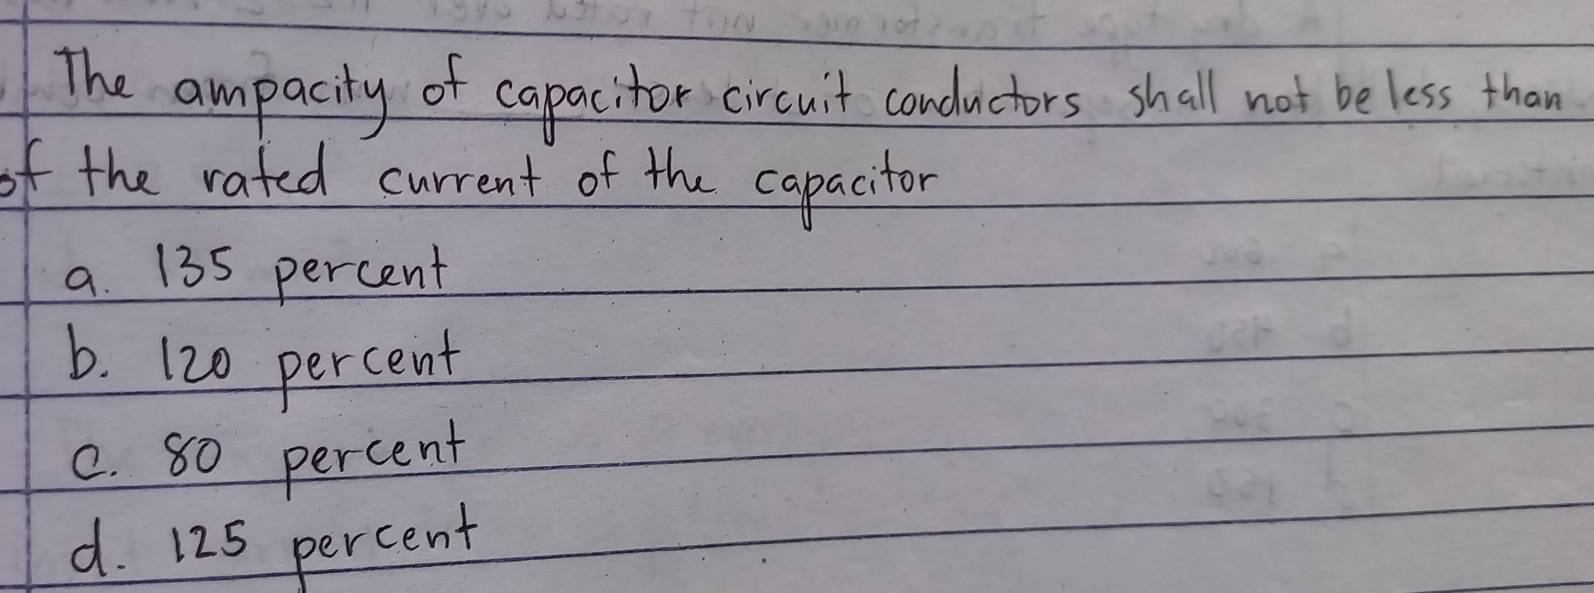 The ampacity of capacitor circuit conductors shall not be less than
of the rated current of the capacitor
a. 135 percent
b. 120 percent
c. 80 percent
d. 125 percent